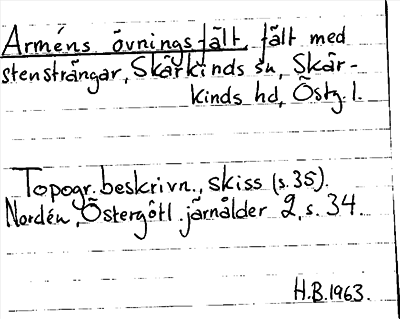 Arméns övningsfält, fält med
stensträngar, Skärkinds sn, Skär-
kinds hd, Östg. l.
Topogr. beskrivn., skiss (s. 35).
Nordén, Östergötl. järnålder 2, s. 34.
H.B. 1963.